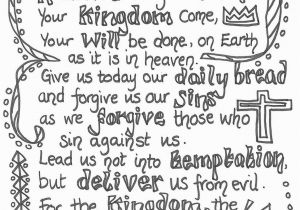 Your Kingdom Come,
Your Will be done, on Earth
as it is in heaven.
Give us today our daily bread
and forgive us our Sins
as we forgive those who
Sin against us.
Lead us not into temptation,
but deliver us from evil.
For the Kingdom, the